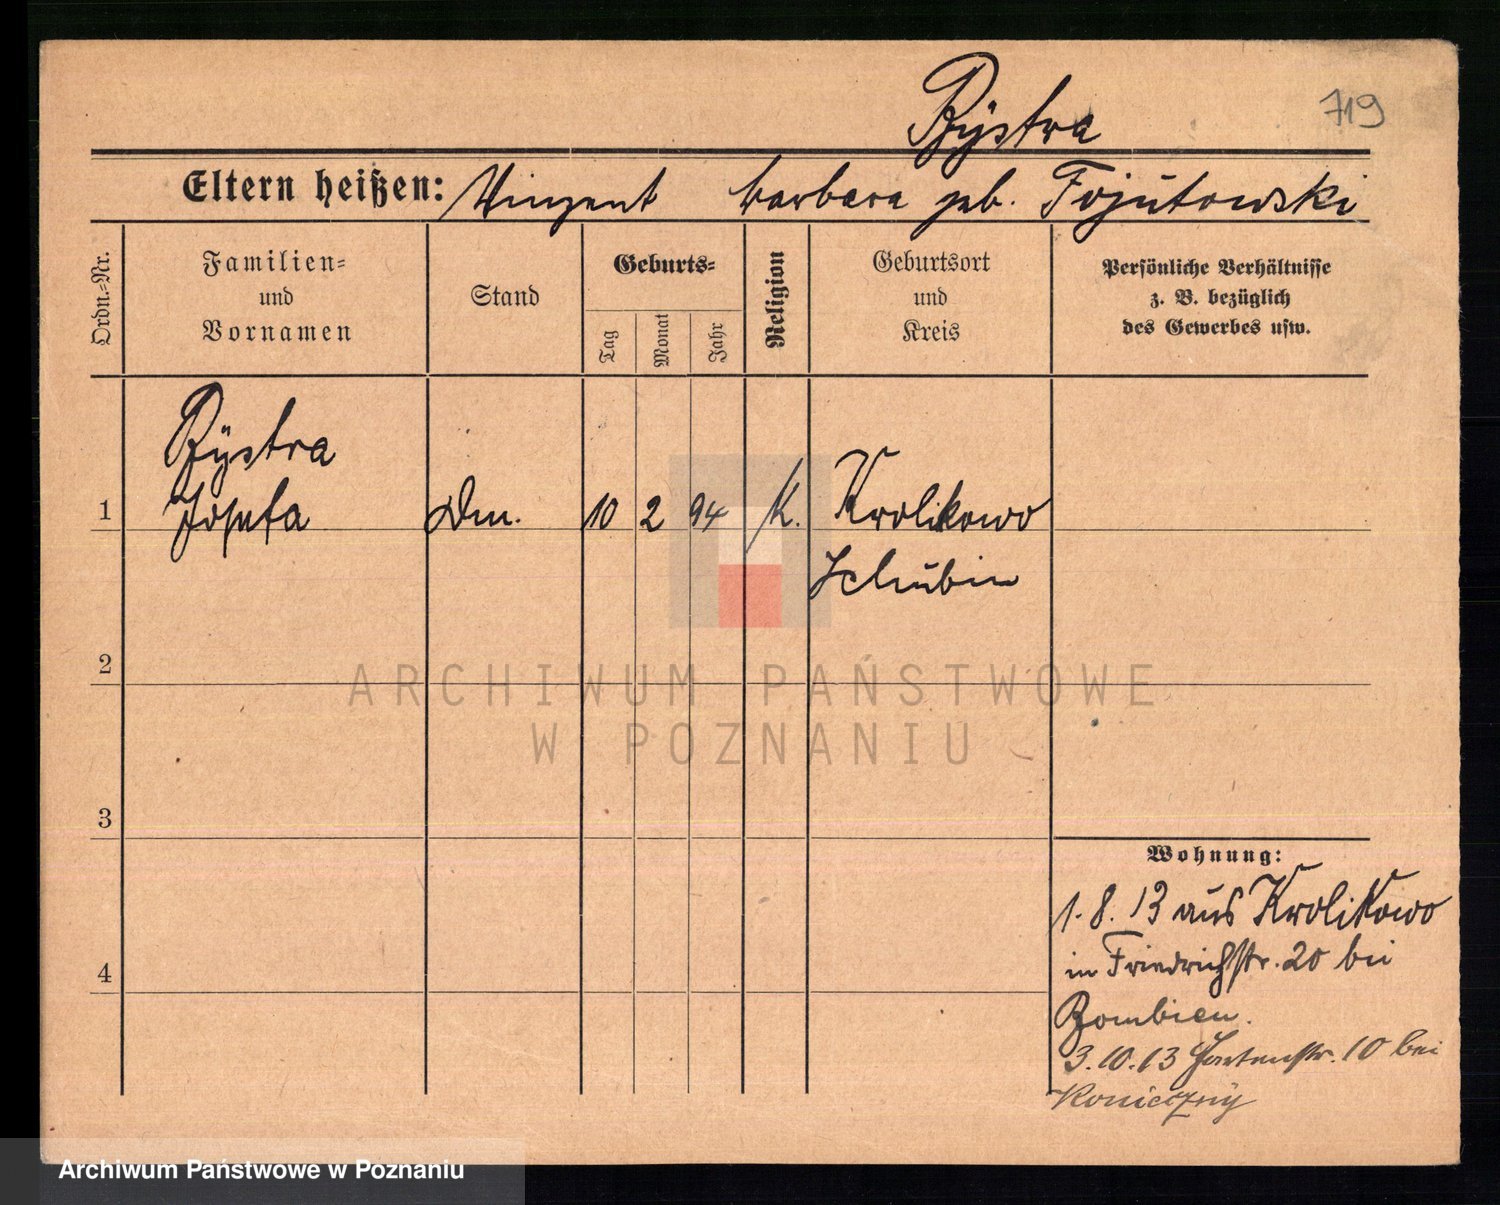 719
Bÿstra
Eltern heißen: Vinzent Barbara geb. Fojutowski
Ordn.-Nr.
Familien- und Vornamen
Stand
Geburts-
Tag
Monat
Jahr
Religion
Geburtsort und Kreis
Persönliche Verhältnisse z. B. bezüglich des Gewerbes usw.
Bÿstra
1 Josefa Dm. 10 2 94 K. Krolikowo
Schubin
2
ARCHIWUM PAŃSTWOWE
W POZNANIU
3
Wohnung:
1. 8. 13 aus Krolikowo
4
in Friedrichstr. 20 bei
3. 10. 13 Gartenstr. 10 bei
Koniecznÿ
Archiwum Państwowe w Poznaniu